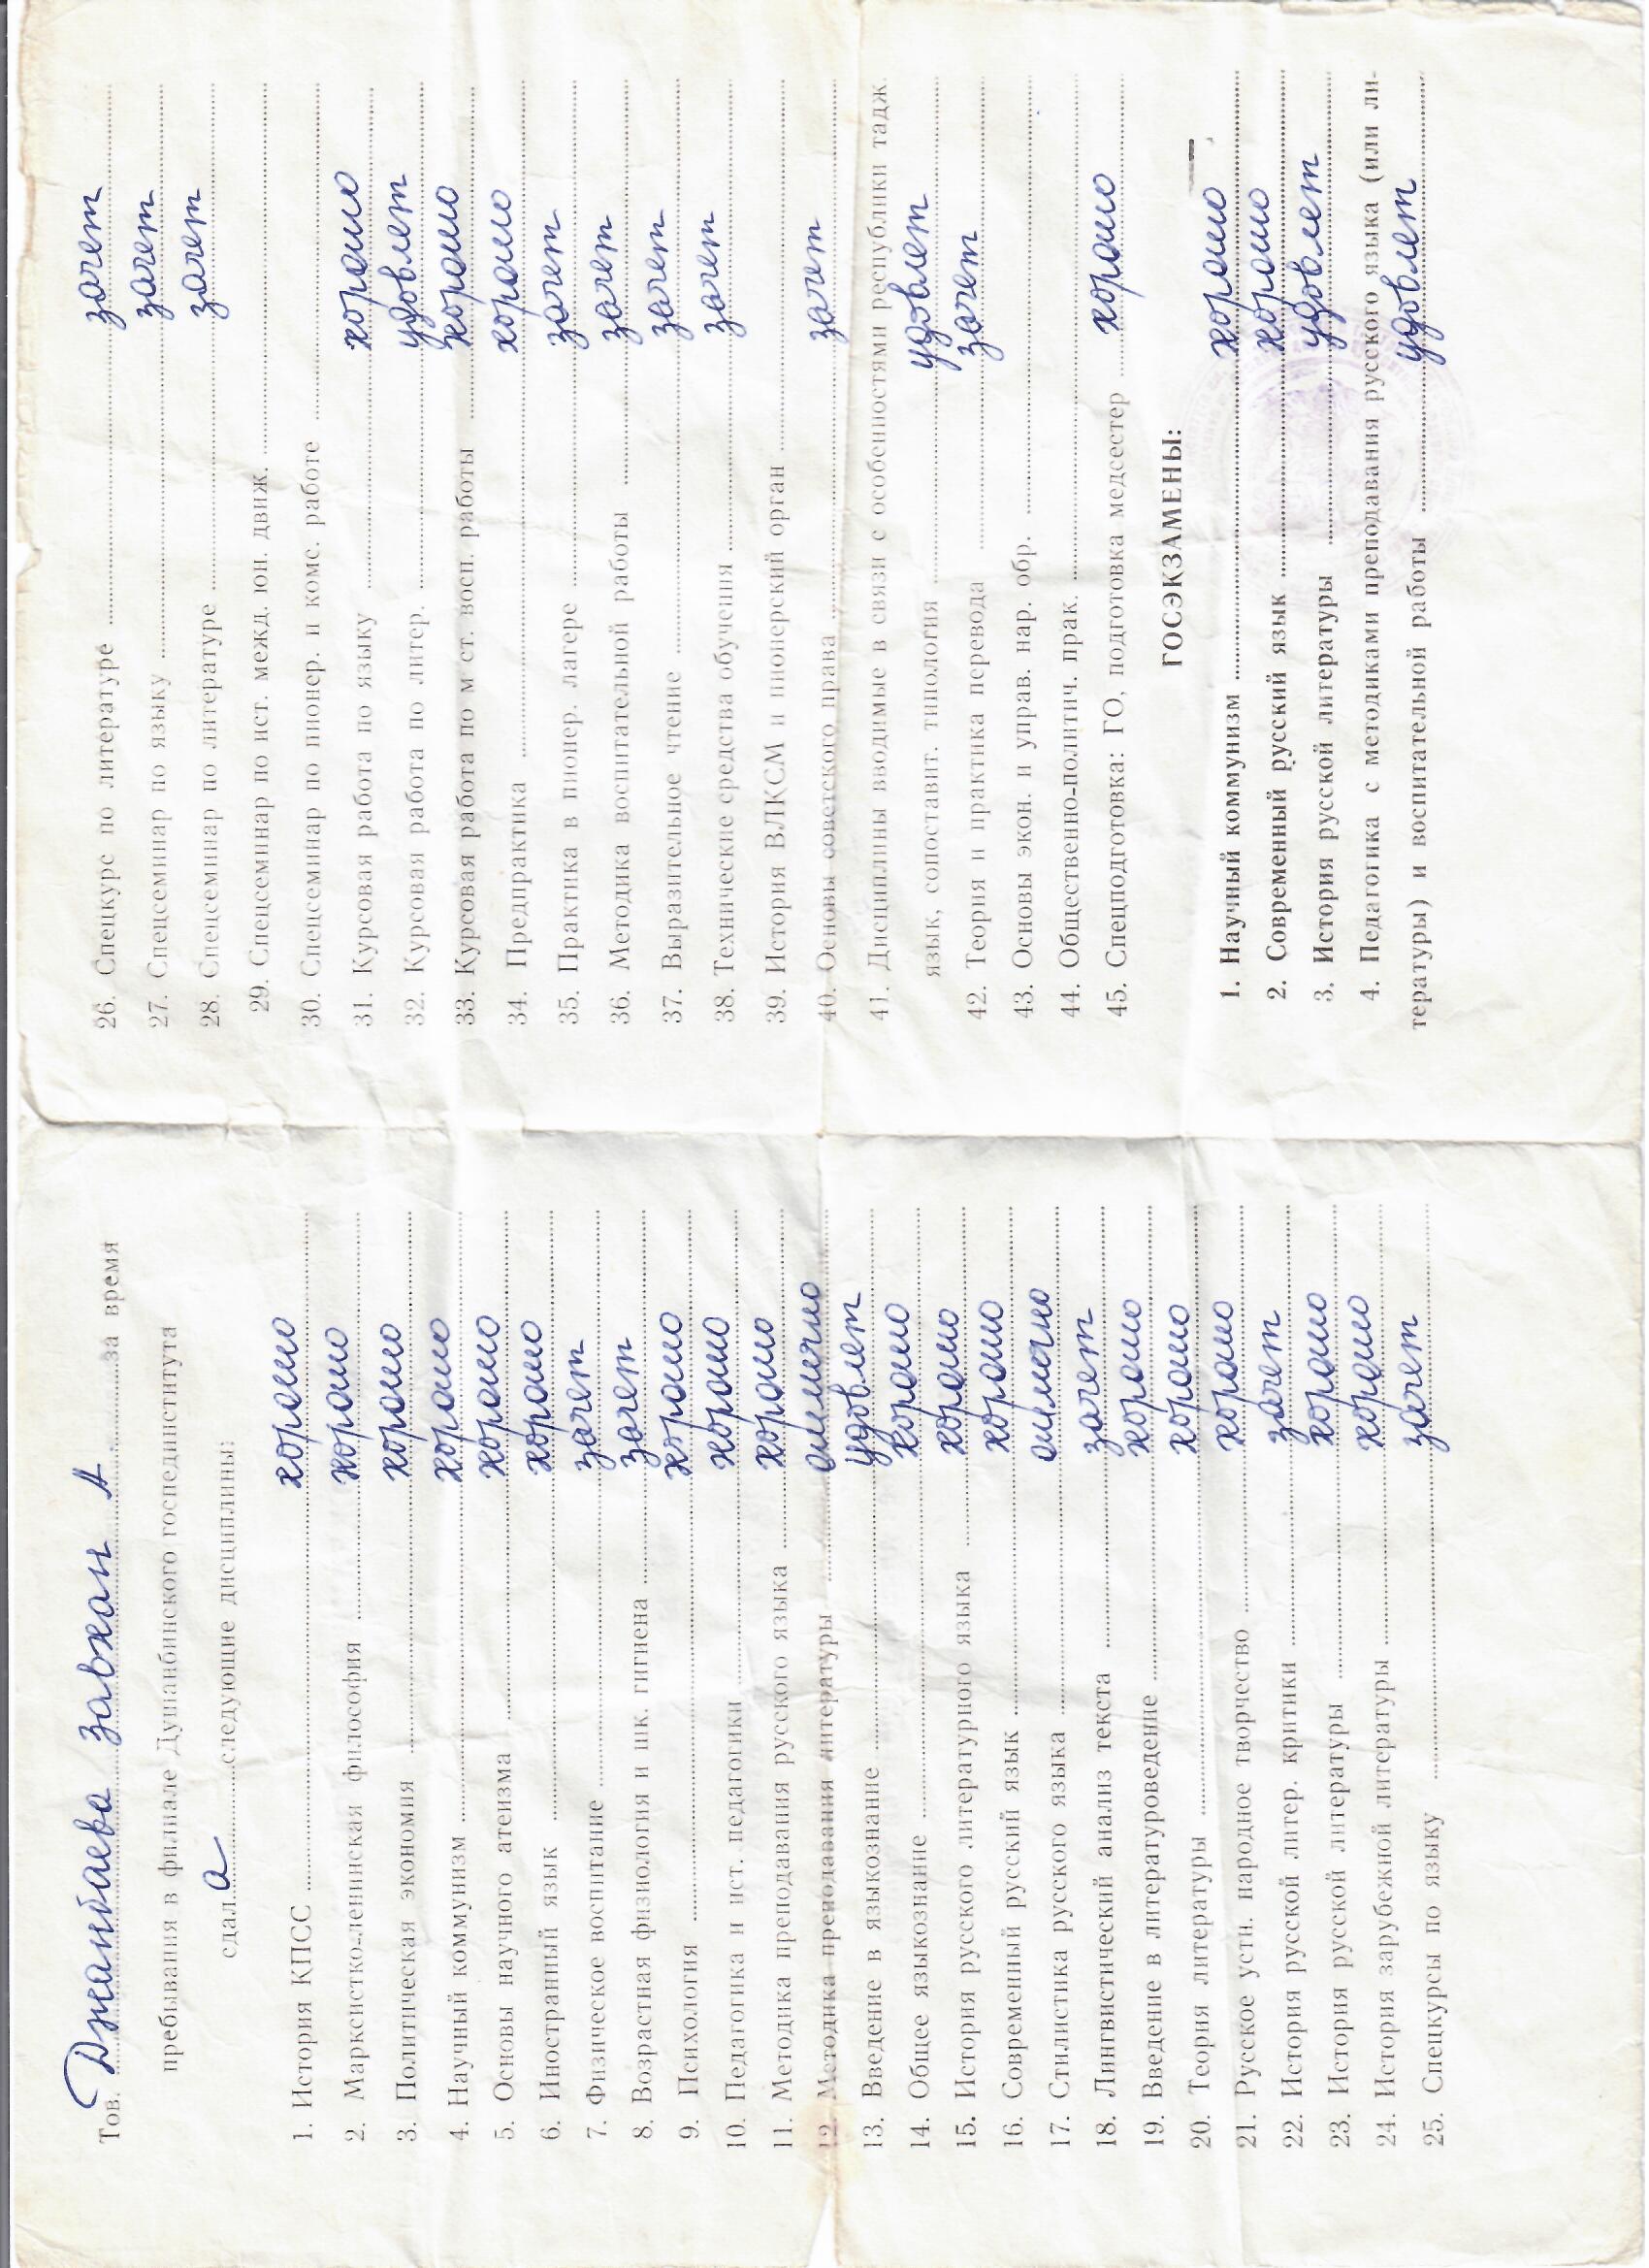 Тов. Джантаева Завхан А. за время
пребывания в филиале Душанбинского госпединститута
сдал а следующие дисциплины:
1. История КПСС хорошо
2. Марксистко-ленинская философия хорошо
3. Политическая экономия хорошо
4. Научный коммунизм хорошо
5. Основы научного атеизма хорошо
6. Иностранный язык хорошо
7. Физическое воспитание зачет
8. Возрастная физиология и шк. гигиена зачет
9. Психология хорошо
10. Педагогика и ист. педагогики хорошо
11. Методика преподавания русского языка хорошо
12. Методика преподавания литературы отлично
13. Введение в языкознание удовлет
14. Общее языкознание хорошо
15. История русского литературного языка хорошо
16. Современный русский язык хорошо
17. Стилистика русского языка отлично
18. Лингвистический анализ текста зачет
19. Введение в литературоведение хорошо
20. Теория литературы хорошо
21. Русское устн. народное творчество хорошо
22. История русской литер. критики зачет
23. История русской литературы хорошо
24. История зарубежной литературы хорошо
25. Спецкурсы по языку зачет
26. Спецкурс по литературе зачет
27. Спецсеминар по языку зачет
28. Спецсеминар по литературе зачет
29. Спецсеминар по ист. межд. юн. движ.
30. Спецсеминар по пионер. и комс. работе
31. Курсовая работа по языку хорошо
32. Курсовая работа по литер. удовлет
33. Курсовая работа по м ст. восп. работы хорошо
34. Предпрактика хорошо
35. Практика в пионер. лагере зачет
36. Методика воспитательной работы зачет
37. Выразительное чтение зачет
38. Технические средства обучения зачет
39. История ВЛКСМ и пионерский орган
40. Основы советского права зачет
41. Дисциплины вводимые в связи с особенностями республики тадж.
язык, сопоставит. типология удовлет
42. Теория и практика перевода зачет
43. Основы экон. и управ. нар. обр.
44. Общественно-политич. прак.
45. Спецподготовка: ГО, подготовка медсестер хорошо
ГОСЭКЗАМЕНЫ:
1. Научный коммунизм хорошо
2. Современный русский язык хорошо
3. История русской литературы удовлет
4. Педагогика с методиками преподавания русского языка (или ли-
тературы) и воспитательной работы удовлет